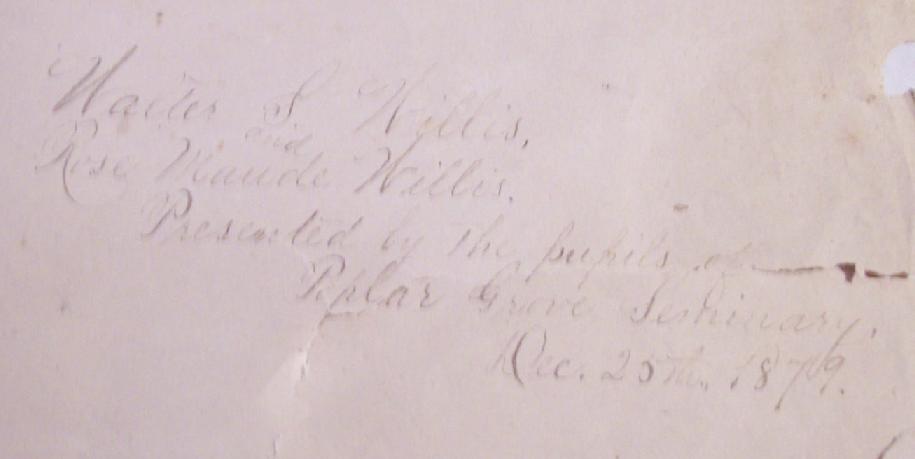 Walter S. Willis,
and
Rose Maude Willis.
Presented by the pupils of
Poplar Grove Seminary.
Dec. 25th. 1879.